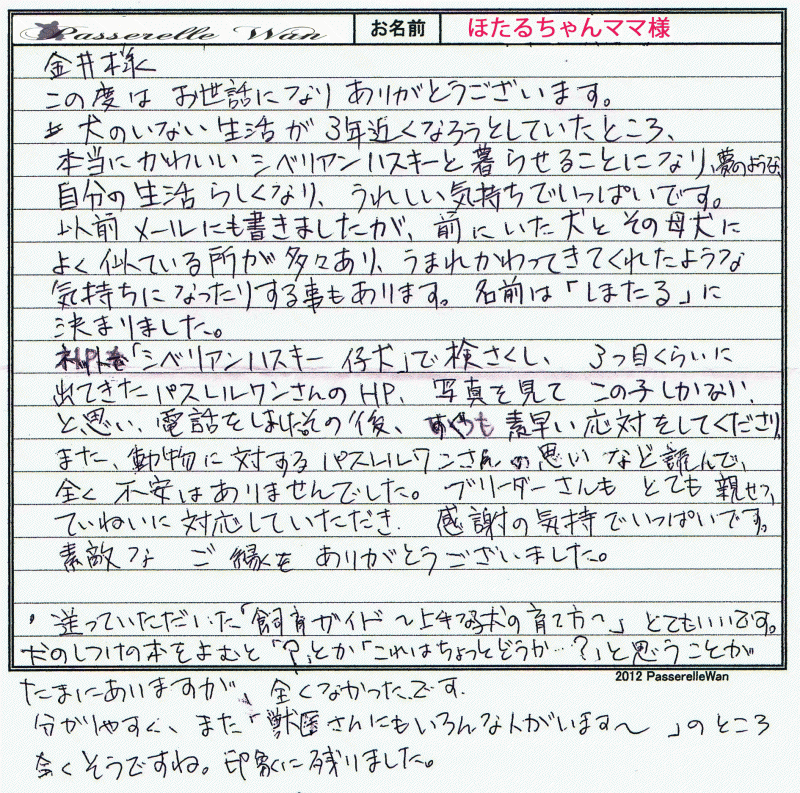 Passerelle Wan お名前 ほたるちゃんママ様
金井様
この度は お世話になり ありがとうございます。
犬のいない生活が 3年近くなろうとしていたところ、
本当にかわいい シベリアンハスキーと暮らせることになり、夢のような、
自分の生活らしくなり、うれしい気持ちでいっぱいです。
以前メールにも書きましたが、前にいた犬とその母犬に
よく似ている所が多々あり、うまれかわってきてくれたような
気持ちになったりする事もあります。名前は「ほたる」に
決まりました。
「シベリアンハスキー 仔犬」で検さくし、3つ目くらいに
出てきたパスレルワンさんのHP、写真を見て この子しかない、
と思い、電話をしました。その後、素早い応対をしてくださり、
また、動物に対するパスレルワンさんの思いなど読んで、
全く不安はありませんでした。ブリーダーさんも とても親せつ、
ていねいに対応していただき、感謝の気持でいっぱいです。
素敵な ご縁を ありがとうございました。
・送っていただいた「飼育ガイド〜上手な子犬の育て方〜」とてもいいです。
犬のしつけの本をよむと「?」とか「これはちょっとどうか…?」と思うことが
2012 PasserelleWan
たまにありますが、全くなかったです。
分かりやすく、また「獣医さんにもいろんな人がいます〜」のところ
全くそうですね。印象に残りました。